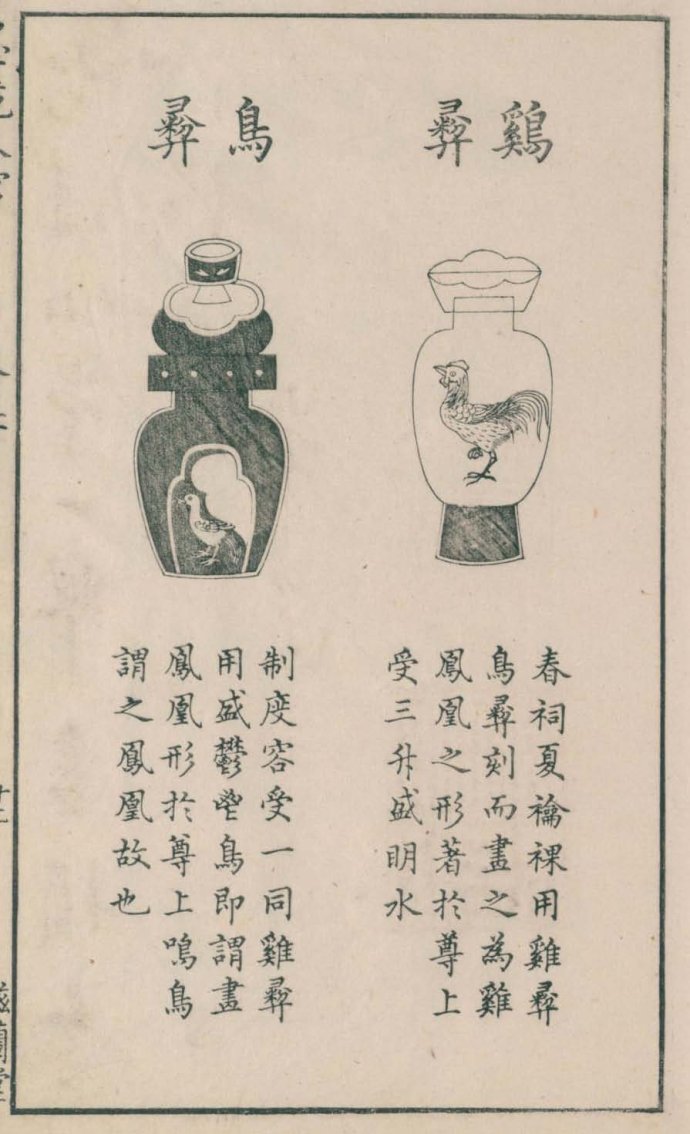 鷄彝
春祠夏禴祼用雞彝
鳥彝刻而畫之為雞
鳳凰之形著於尊上
受三升盛明水
鳥彝
制度容受一同雞彝
用盛鬱鬯鳥即謂畫
鳳凰形於尊上鳴鳥
謂之鳳凰故也